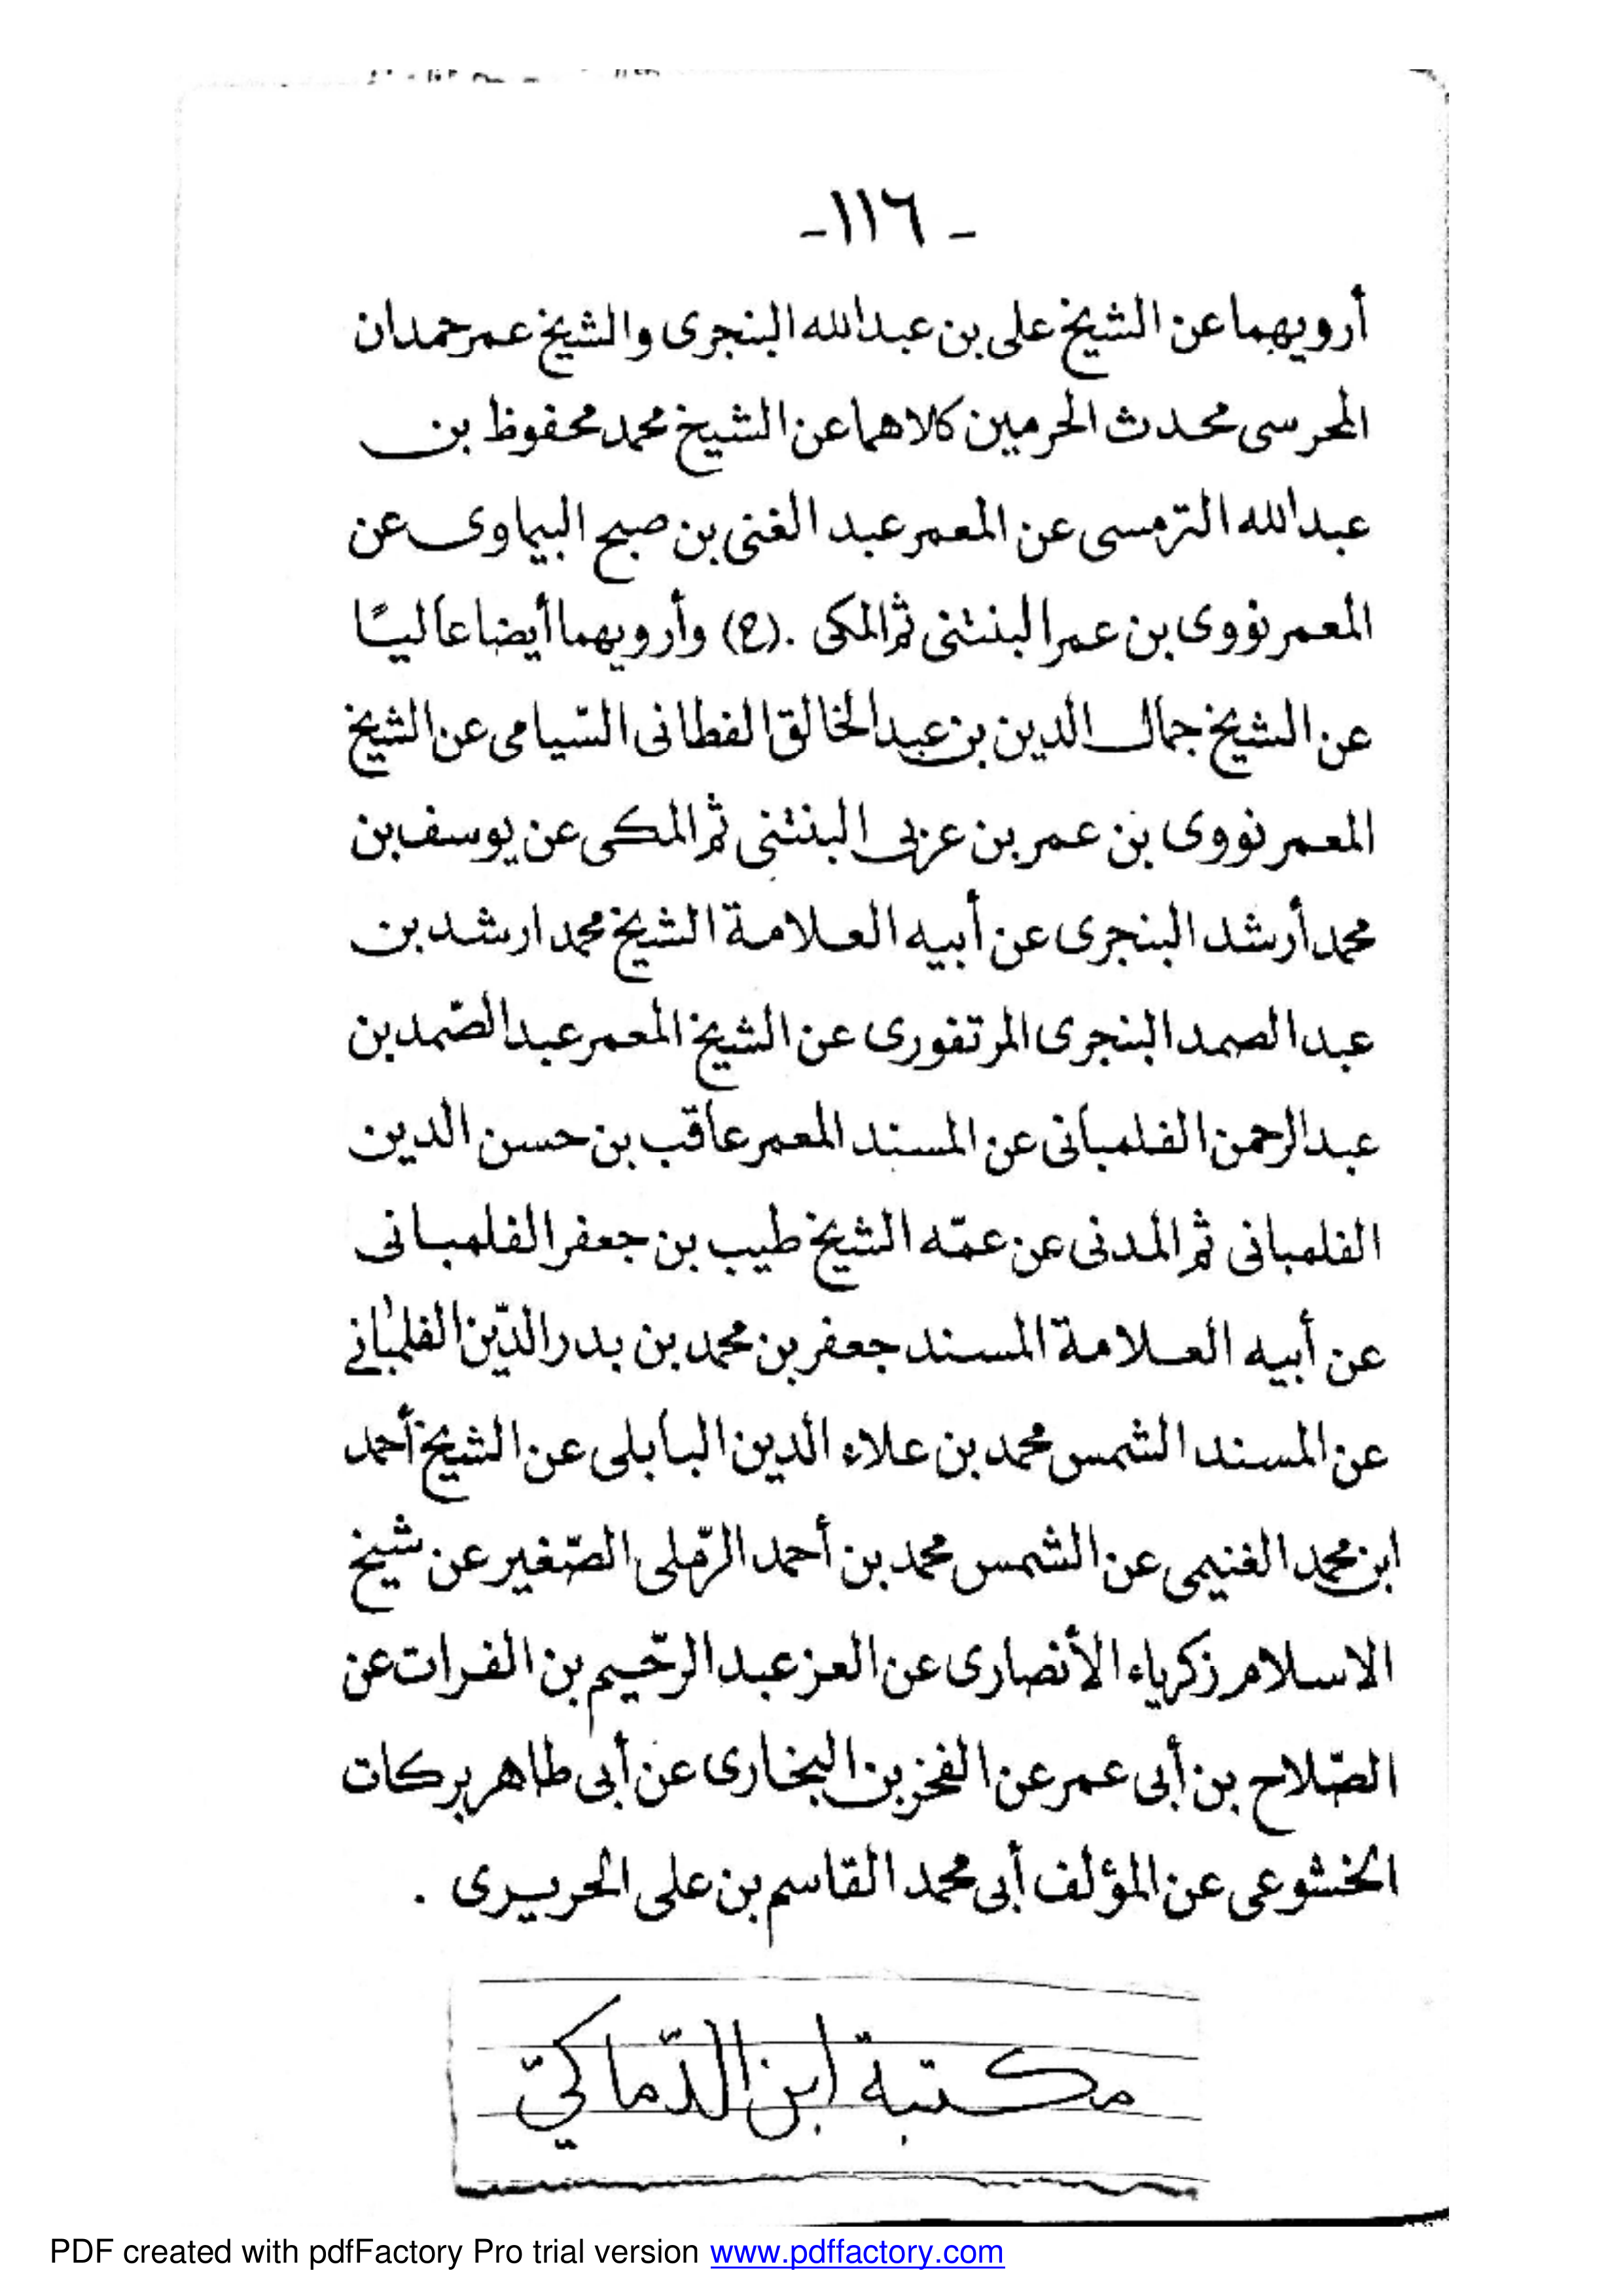 - ١١٦ -
أرويهما عن الشيخ على بن عبدالله البنجرى والشيخ عمر حمدان
المحرسى محدث الحرمين كلاهما عن الشيخ محمد محفوظ بن
عبدالله الترمسى عن المعمر عبد الغنى بن صبح البيماوى عن
المعمر نووى بن عمر البنتنى ثم المكى . (ح) وأرويهما أيضا عاليًا
عن الشيخ جمال الدين بن عبد الخالق الفطانى السّيامى عن الشيخ
المعمر نووى بن عمر بن عربى البنتنى ثم المكى عن يوسف بن
محمد أرشد البنجرى عن أبيه العلامة الشيخ محمد ارشد بن
عبد الصمد البنجرى المرتفورى عن الشيخ المعمر عبد الصّمد بن
عبد الرحمن الفلمبانى عن المسند المعمر عاقب بن حسن الدين
الفلمبانى ثم المدنى عن عمّه الشيخ طيب بن جعفر الفلمبانى
عن أبيه العلامة المسند جعفر بن محمد بن بدر الدّين الفلمبانى
عن المسند الشمس محمد بن علاء الدين البابلى عن الشيخ أحمد
ابن محمد الغنيمى عن الشمس محمد بن أحمد الرّملى الصّغير عن شيخ
الاسلام زكرياء الأنصارى عن العز عبد الرّحيم بن الفرات عن
الصّلاح بن أبى عمر عن الفخر بن البخارى عن أبى طاهر بركات
الخشوعى عن المؤلف أبى محمد القاسم بن على الحريرى .
مكتبة ابن الدّماكيّ
PDF created with pdfFactory Pro trial version www.pdffactory.com